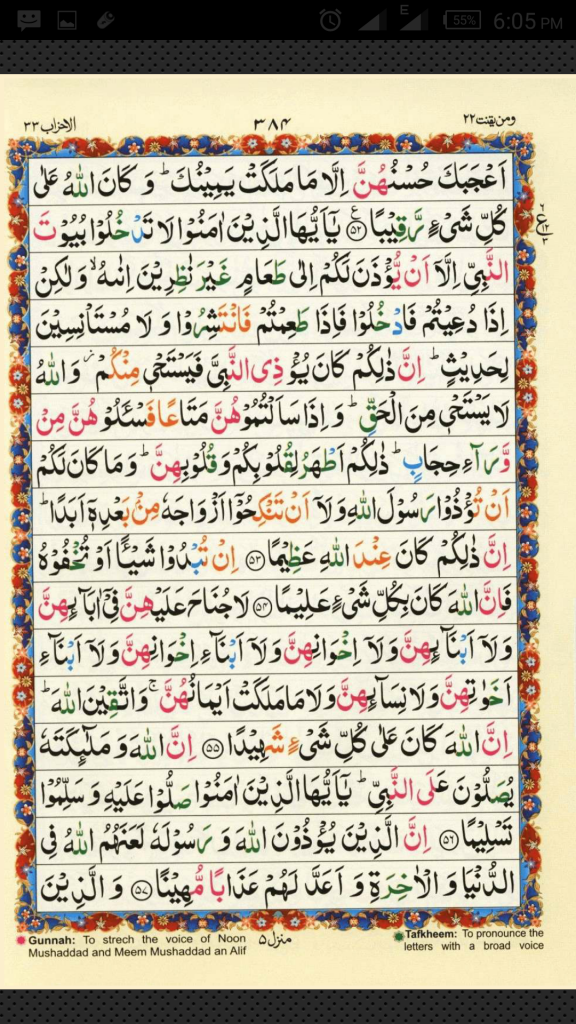 E
55%
6:05 PM
ومن یقنت ۲۲
۳۸۴
الاحزاب ۳۳
اَعْجَبَكَ حُسْنُهُنَّ اِلَّا مَا مَلَكَتْ يَمِيْنُكَ ؕ وَ كَانَ اللّٰهُ عَلٰى
كُلِّ شَیْءٍ رَّقِيْبًا ﴿۵۲﴾ يٰۤاَيُّهَا الَّذِيْنَ اٰمَنُوْا لَا تَدْخُلُوْا بُيُوْتَ
النَّبِيِّ اِلَّاۤ اَنْ يُّؤْذَنَ لَكُمْ اِلٰى طَعَامٍ غَيْرَ نٰظِرِيْنَ اِنٰىهُ ۙ وَلٰكِنْ
اِذَا دُعِيْتُمْ فَادْخُلُوْا فَاِذَا طَعِمْتُمْ فَانْتَشِرُوْا وَ لَا مُسْتَاْنِسِيْنَ
لِحَدِيْثٍ ؕ اِنَّ ذٰلِكُمْ كَانَ يُؤْذِى النَّبِيَّ فَيَسْتَحْیٖ مِنْكُمْ ؗ وَ اللّٰهُ
لَا يَسْتَحْیٖ مِنَ الْحَقِّ ؕ وَ اِذَا سَاَلْتُمُوْهُنَّ مَتَاعًا فَسْـَٔلُوْهُنَّ مِنْ
وَّرَآءِ حِجَابٍ ؕ ذٰلِكُمْ اَطْهَرُ لِقُلُوْبِكُمْ وَ قُلُوْبِهِنَّ ؕ وَ مَا كَانَ لَكُمْ
اَنْ تُؤْذُوْا رَسُوْلَ اللّٰهِ وَ لَاۤ اَنْ تَنْكِحُوْۤا اَزْوَاجَهٗ مِنْۢ بَعْدِهٖۤ اَبَدًا ؕ
اِنَّ ذٰلِكُمْ كَانَ عِنْدَ اللّٰهِ عَظِيْمًا ﴿۵۳﴾ اِنْ تُبْدُوْا شَيْـًٔا اَوْ تُخْفُوْهُ
فَاِنَّ اللّٰهَ كَانَ بِكُلِّ شَیْءٍ عَلِيْمًا ﴿۵۴﴾ لَا جُنَاحَ عَلَيْهِنَّ فِیْۤ اٰبَآىِٕهِنَّ
وَ لَاۤ اَبْنَآىِٕهِنَّ وَ لَاۤ اِخْوَانِهِنَّ وَ لَاۤ اَبْنَآءِ اِخْوَانِهِنَّ وَ لَاۤ اَبْنَآءِ
اَخَوٰتِهِنَّ وَ لَا نِسَآىِٕهِنَّ وَ لَا مَا مَلَكَتْ اَيْمَانُهُنَّ ۚ وَ اتَّقِيْنَ اللّٰهَ ؕ
اِنَّ اللّٰهَ كَانَ عَلٰى كُلِّ شَیْءٍ شَهِيْدًا ﴿۵۵﴾ اِنَّ اللّٰهَ وَ مَلٰٓىِٕكَتَهٗ
يُصَلُّوْنَ عَلَى النَّبِيِّ ؕ يٰۤاَيُّهَا الَّذِيْنَ اٰمَنُوْا صَلُّوْا عَلَيْهِ وَ سَلِّمُوْا
تَسْلِيْمًا ﴿۵۶﴾ اِنَّ الَّذِيْنَ يُؤْذُوْنَ اللّٰهَ وَ رَسُوْلَهٗ لَعَنَهُمُ اللّٰهُ فِی
الدُّنْيَا وَ الْاٰخِرَةِ وَ اَعَدَّ لَهُمْ عَذَابًا مُّهِيْنًا ﴿۵۷﴾ وَ الَّذِيْنَ
منزل ۵
Gunnah: To strech the voice of Noon
Mushaddad and Meem Mushaddad an Alif
Tafkheem: To pronounce the
letters with a broad voice